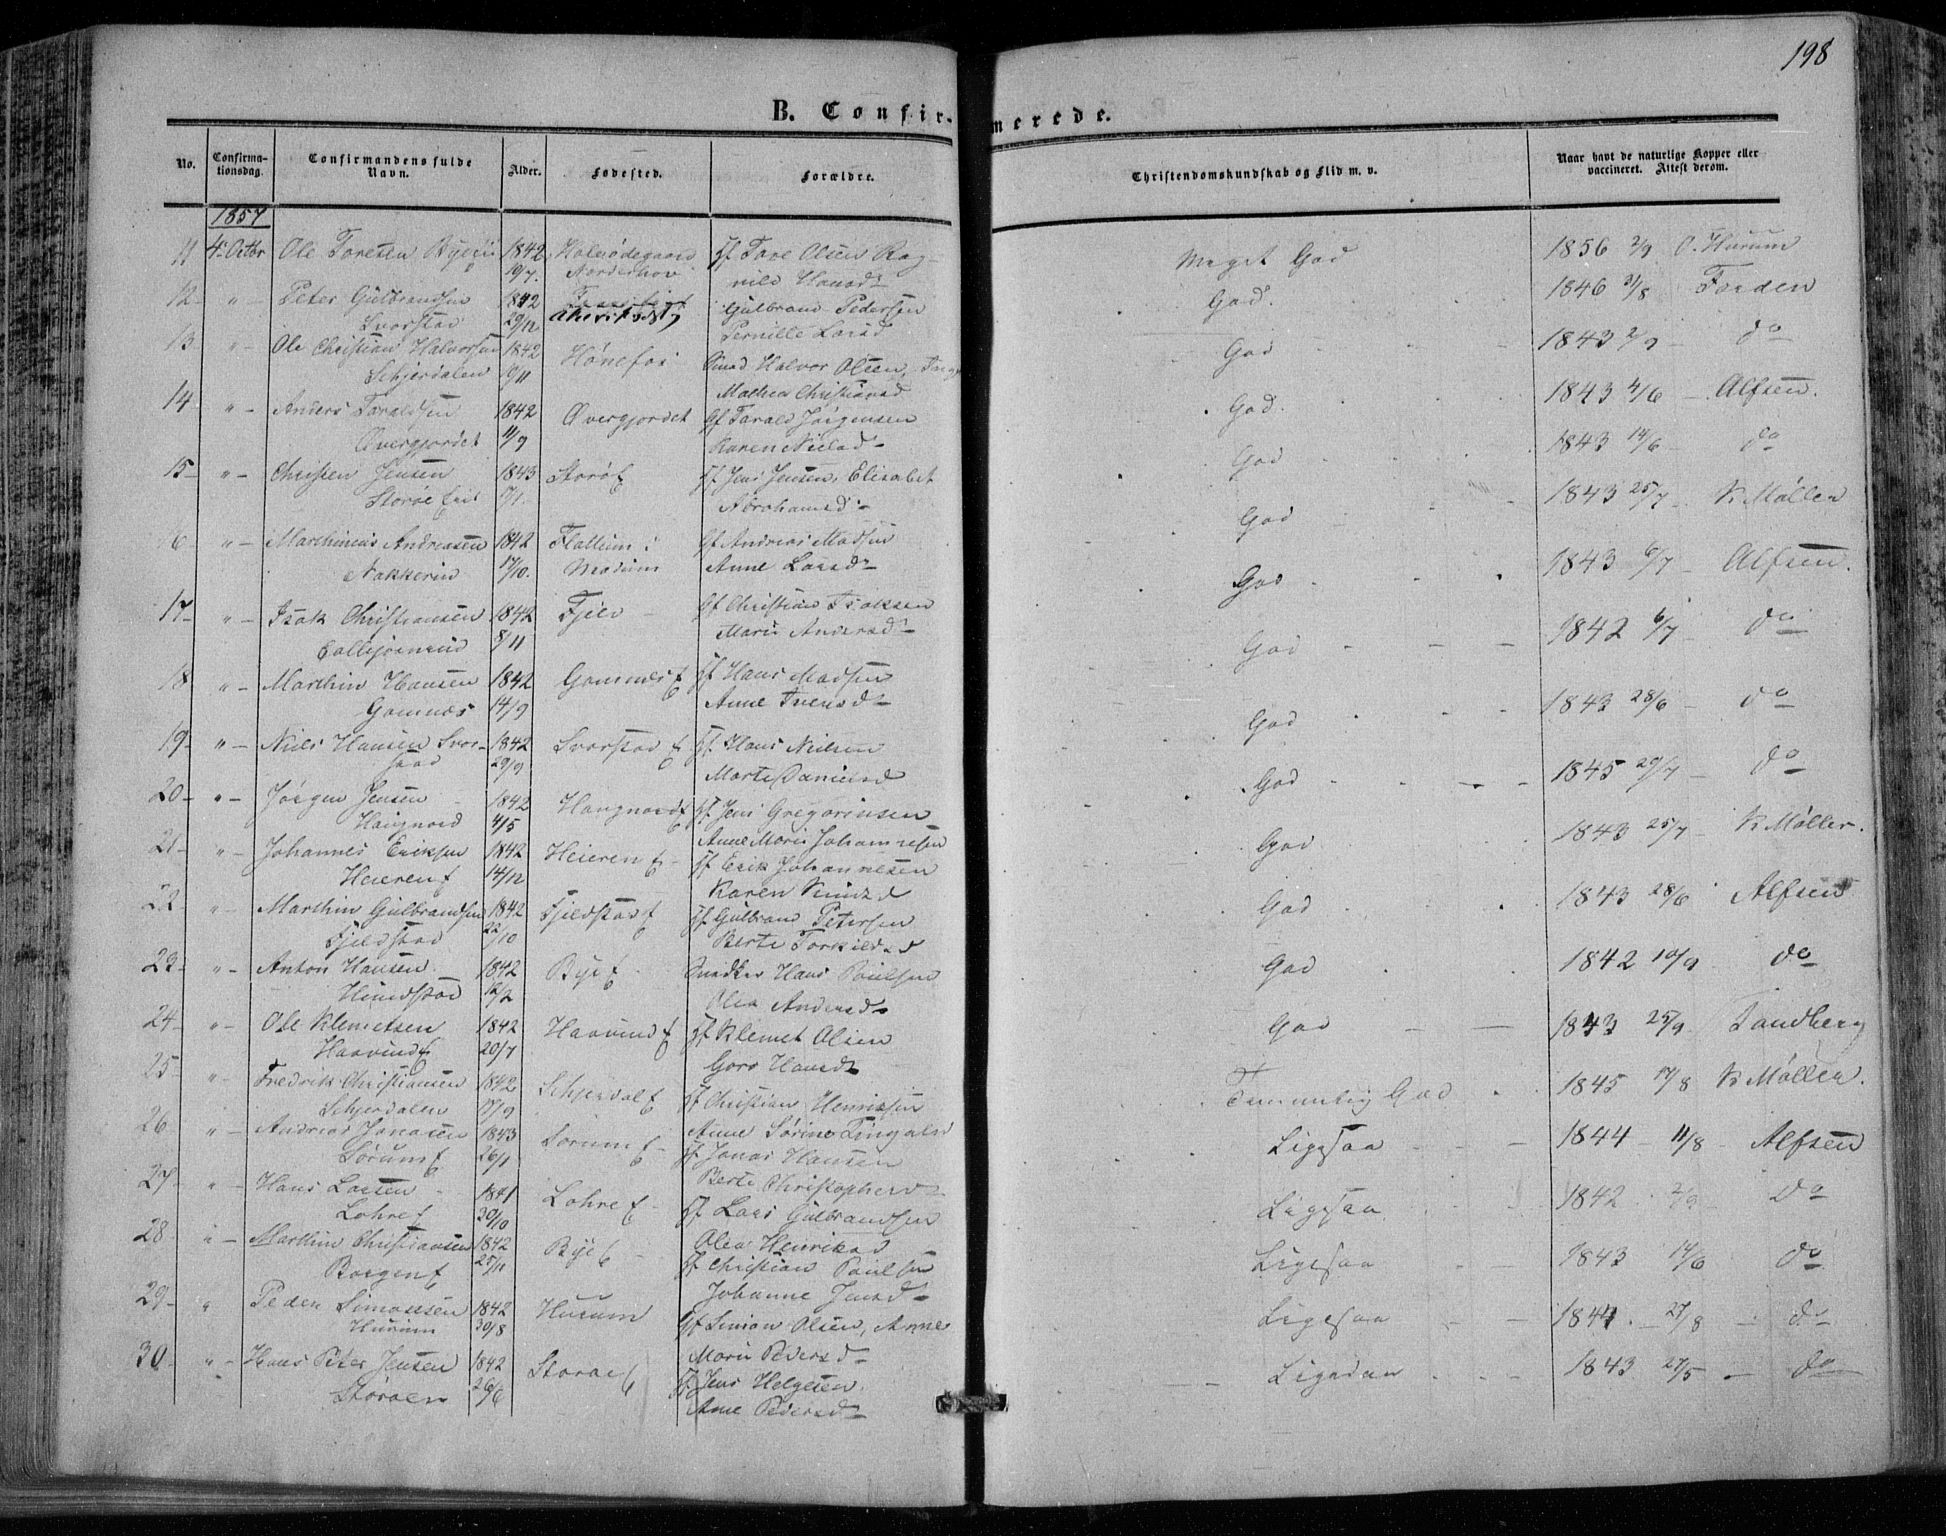 198
B. Confirmerede.
No.
Confirma-
tionsdag.
Confirmandens fulde
Navn.
Alder.
Fødested.
Forældre.
Christendomskundskab og Flid m. v.
Naar havt de naturlige Kopper eller
vaccineret. Attest derom.
1857
11 4. Octbr Ole Toresen 1842 Norderhov gf Tore Olsen Rag- Meget God 1856 2/9 O. Hurum
19/7. nild Hansd
12 " Peter Gulbrandsen 1842 Gulbrand Pedersen God. 1846 3/8 Forden
Svarstad 29/12 Pernille Larsd
13 " Ole Christian Halvorsen 1842 Hønefos Smed Halvor Olsen, God 1843 2/9 do
Schjerdalen 19/11 Mathea Christiansd
14 " Anders Taraldsen 1842 Øvergjordet gf Tarald Jørgensen God. 1843 4/6 Alfsen.
Øvergjordet 11/9 Karen Nielsd
15 " Christen Jensen 1843 Storøe gf Jens Jensen, Elisabet God 1843 14/6 do
Storøe Eie 17/1 Abrahamsd
16 " Marthinius Andreasen 1842 i gf Andreas Madsen God 1843 25/7 K Møller
Nakkerud 17/10. Modum Anne Larsd
17 " Isak Christiansen 1842 Fjeld gf Christian Isaksen God 1843 6/7 Alfsen.
8/11 Marie Andersd
18 " Marthin Hansen 1842 Gomnes gf Hans Madsen God 1842 6/7 do
Gomnæs 14/9 Anne Iversd
19 " Niels Hansen Svar- 1842 Svarstad gf Hans Nielsen God 1843 28/6 do
stad 29/9 Marte Danielsd
20 " Jørgen Jensen 1842 gf Jens Gregoriusen God 1845 29/7 do
4/5 Anne Marie Johannesen
21 " Johannes Eriksen 1842 Heieren gf Erik Johannesen God 1843 25/7 K Møller.
Heieren 14/12 Karen Knudsd
22 " Marthin Gulbrandsen 1842 Fjeldstad gf Gulbrand Petersen God 1843 28/6 Alfsen
Fjeldstad 22/10 Berte Torkildsd
23 " Anton Hansen 1842 Bye Snedker Hans Poulsen God 1842 19/9 do
Hundstad 12/2 Olea Andersd
24 " Ole Klemetsen 1842 gf Klemet Olsen God 1843 25/9 Tandberg
20/7 Hansd
25 " Fredrik Christiansen 1842 Schjerdal gf Christian Henriksen Temmelig God 1845 14/8 K Møller.
Schjerdalen 17/9 Anne Sørine
26 " Andreas Jonasen 1843 Sørum gf Jonas Hansen Ligesaa 1844 11/8 Alfsen
Sørum 26/1 Berte Christophersd
27 " Hans Larsen 1841 Lohre gf Lars Gulbrandsen Ligesaa 1842 2/9 do
Lohre 30/10 Olea Henriksd
28 " Marthin Christiansen 1842 Bye gf Christian Poulsen Ligesaa 1843 14/6 do
Borgen 25/11 Johanne Jensd
29 " Peder Simonsen 1842 Hurum gf Simon Olsen, Anne Ligesaa 1844 27/8 do
Hurum 30/8 Marie Pedersd
30 " Hans Peter Jensen 1842 Storøe gf Jens Helgesen. Ligedan 1843 27/5 do
Storøen 26/6 Anne Pedersd